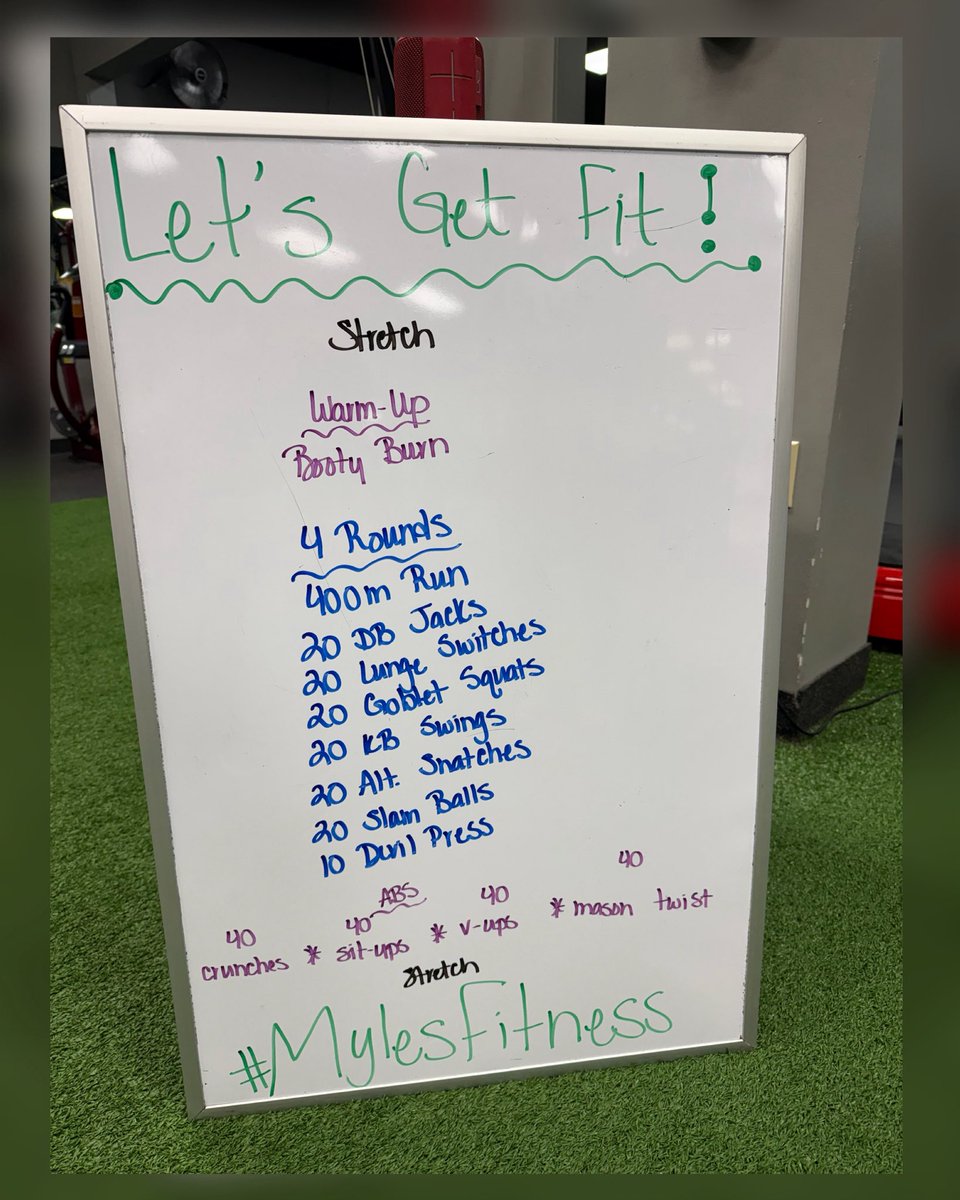 Let's Get Fit!
Stretch
Warm-Up
Booty Burn
4 Rounds
400m Run
20 DB Jacks
20 Lunge Switches
20 Goblet Squats
20 KB Swings
20 Alt. Snatches
20 Slam Balls
10 Devil Press
ABS
40 40 40 40
crunches * sit-ups * v-ups * mason twist
Stretch
#MylesFitness